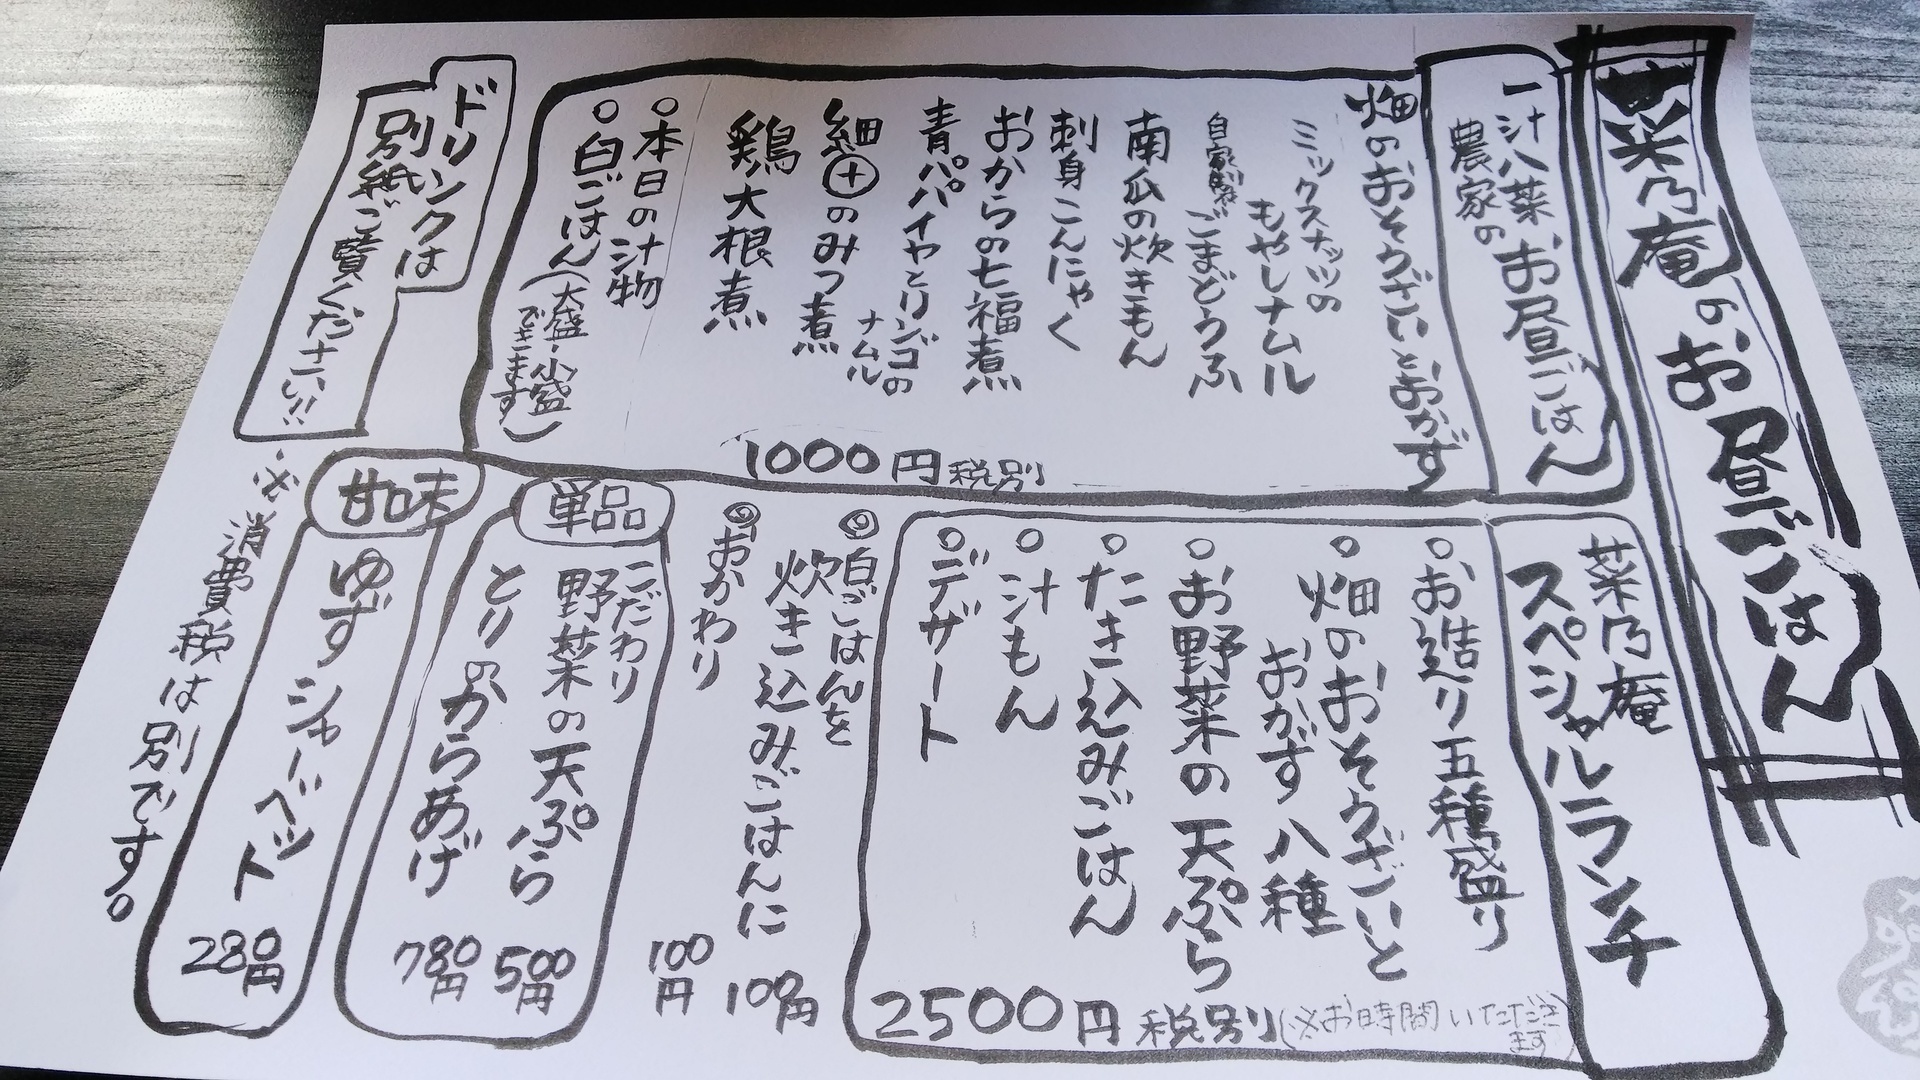 菜乃庵のお昼ごはん
一汁八菜
農家の
お昼ごはん
畑のおそうざいとおかず
ミックスナッツの
もやしナムル
自家製ごまどうふ
南瓜の炊きもん
刺身こんにゃく
おからの七福煮
青パパイヤとリンゴの
ナムル
細㊉のみつ煮
鶏大根煮
○本日の汁物
○白ごはん(大盛・小盛
できます)
1000円税別
ドリンクは
別紙ご覧ください!!
菜乃庵
スペシャルランチ
○お造り五種盛り
○畑のおそうざいと
おかず八種
○お野菜の天ぷら
○たき込みごはん
○汁もん
○デザート
2500円税別(※お時間いただき
ます)
◎白ごはんを
炊き込みごはんに
100円
◎おかわり
100円
単品
こだわり
野菜の天ぷら
500円
とりのからあげ
780円
甘味
ゆずシャーベット
280円
※消費税は別です。